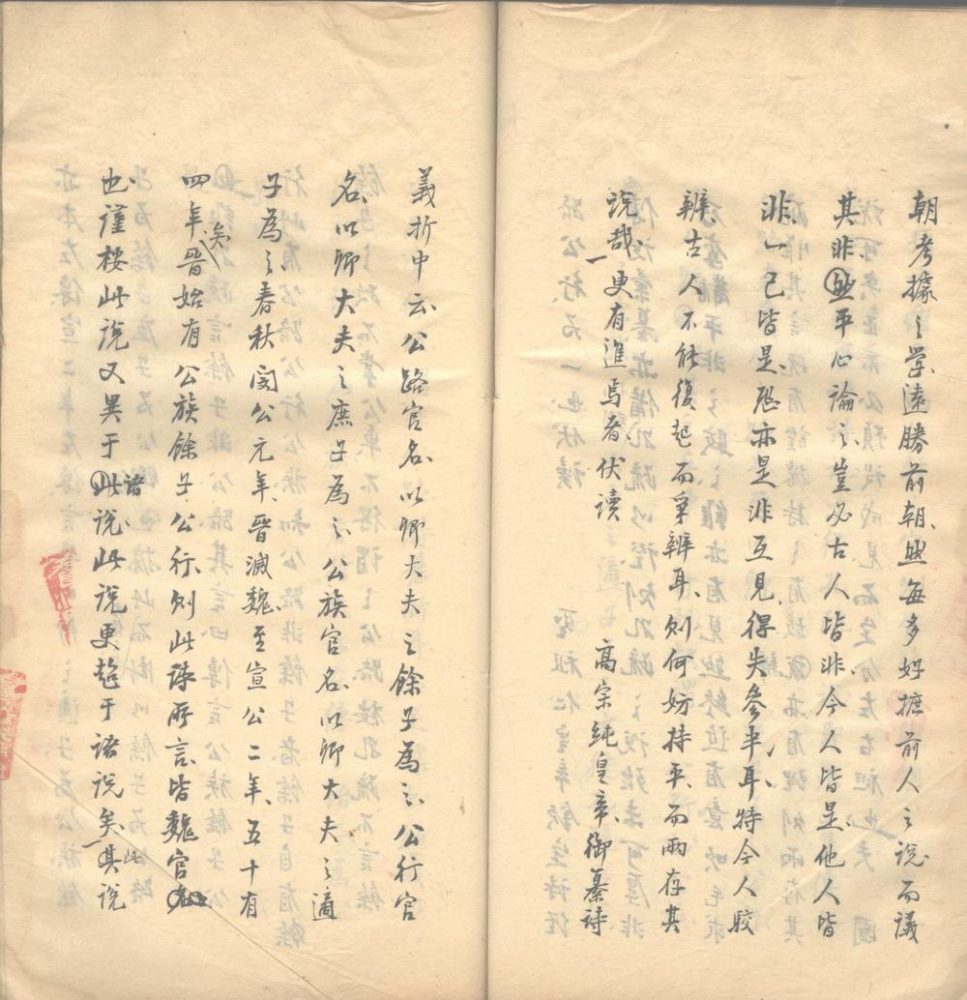 朝考據之學遠勝前朝然每多好摭前人之說而議
其非然平心論之豈必古人皆非今人皆是他人皆
非一己皆是恐亦是非互見得失參半耳特今人駁
辨古人不能復起而爭辨耳則何妨持平而兩存其
說哉更有進焉者伏讀 高宗純皇帝御纂詩
義折中云公路官名以卿大夫之餘子為之公行官
名以卿大夫之庶子為之公族官名以卿大夫之適
子為之春秋閔公元年晉滅魏至宣公二年五十有
四年矣晉始有公族餘子公行則此詩所言皆魏官
也謹按此說又異于諸說此說更超于諸說矣此其說